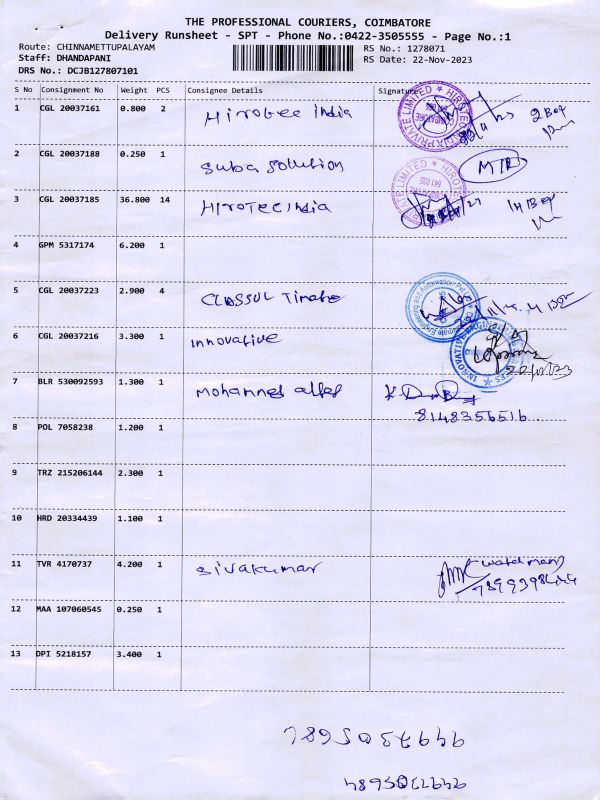 THE PROFESSIONAL COURIERS, COIMBATORE
Delivery Runsheet - SPT - Phone No.:0422-3505555 - Page No.:1
Route: CHINNAMETTUPALAYAM RS No.: 1278071
Staff: DHANDAPANI RS Date: 22-Nov-2023
DRS No.: DCJB127807101
S No Consignment No Weight PCS Consignee Details Signature
1 CGL 20037161 0.800 2 Hirotec india 2 Box
2 CGL 20037188 0.250 1 Suba solution
3 CGL 20037185 36.800 14 HIROTEC India 14 Box
4 GPM 5317174 6.200 1
5 CGL 20037223 2.900 4
6 CGL 20037216 3.300 1 innovative
7 BLR 530092593 1.300 1 mohammed
8148356516
8 POL 7058238 1.200 1
9 TRZ 215206144 2.300 1
10 HRD 20334439 1.100 1
11 TVR 4170737 4.200 1 sivakumar watchman
12 MAA 107060545 0.250 1
13 DPI 5218157 3.400 1